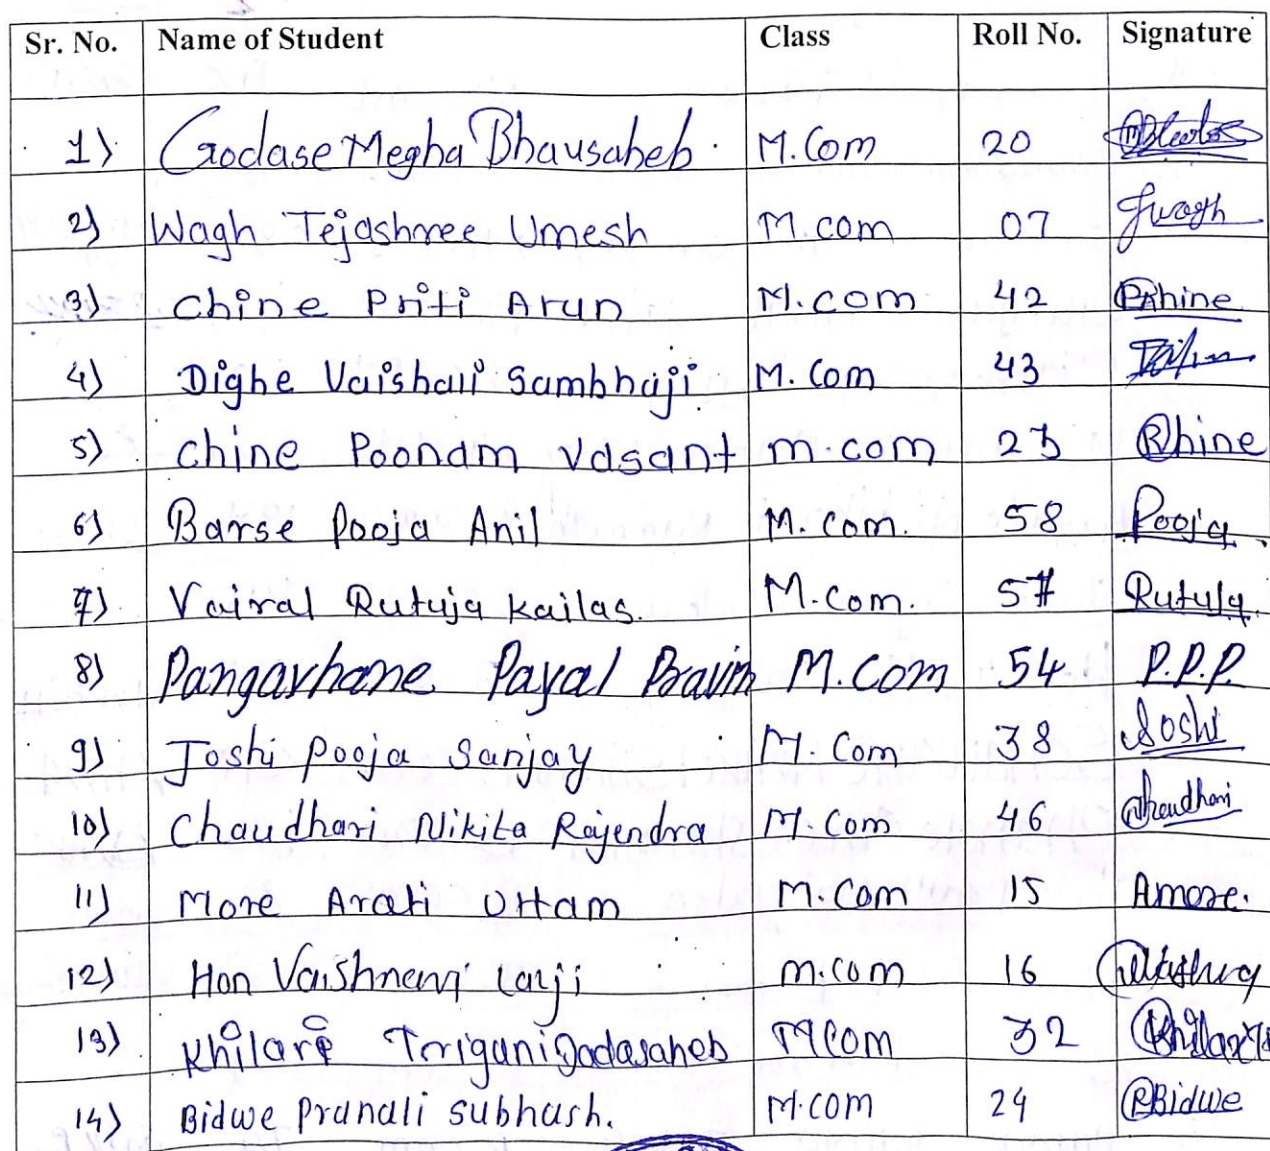 Sr. No. Name of Student Class Roll No. Signature
1) Godase Megha Bhausaheb. M.Com 20
2) Wagh Tejashree Umesh M.com 07 Jwagh
3) Chine Priti Arun M.com 42 Pchine
4) Dighe Vaishali Sambhaji M. Com 43
5) Chine Poonam Vasant m.com 23 Phine
6) Barse Pooja Anil M. Com. 58 Pooja.
7) Vairal Rutuja Kailas. M.Com. 57 Rutuja.
8) Pangavhane Payal Pravin M.Com 54 P.P.P.
9) Joshi Pooja Sanjay M. Com 38 Joshi
10) Chaudhari Nikita Rajendra M. Com 46 Chaudhari
11) More Arati Uttam M.Com 15 Amore.
12) Hon Vaishnavi Lalji m.com 16
13) Khilari Trigani Dadasaheb MCom 32
14) Bidwe Pranali subhash. M.COM 24 PBidwe